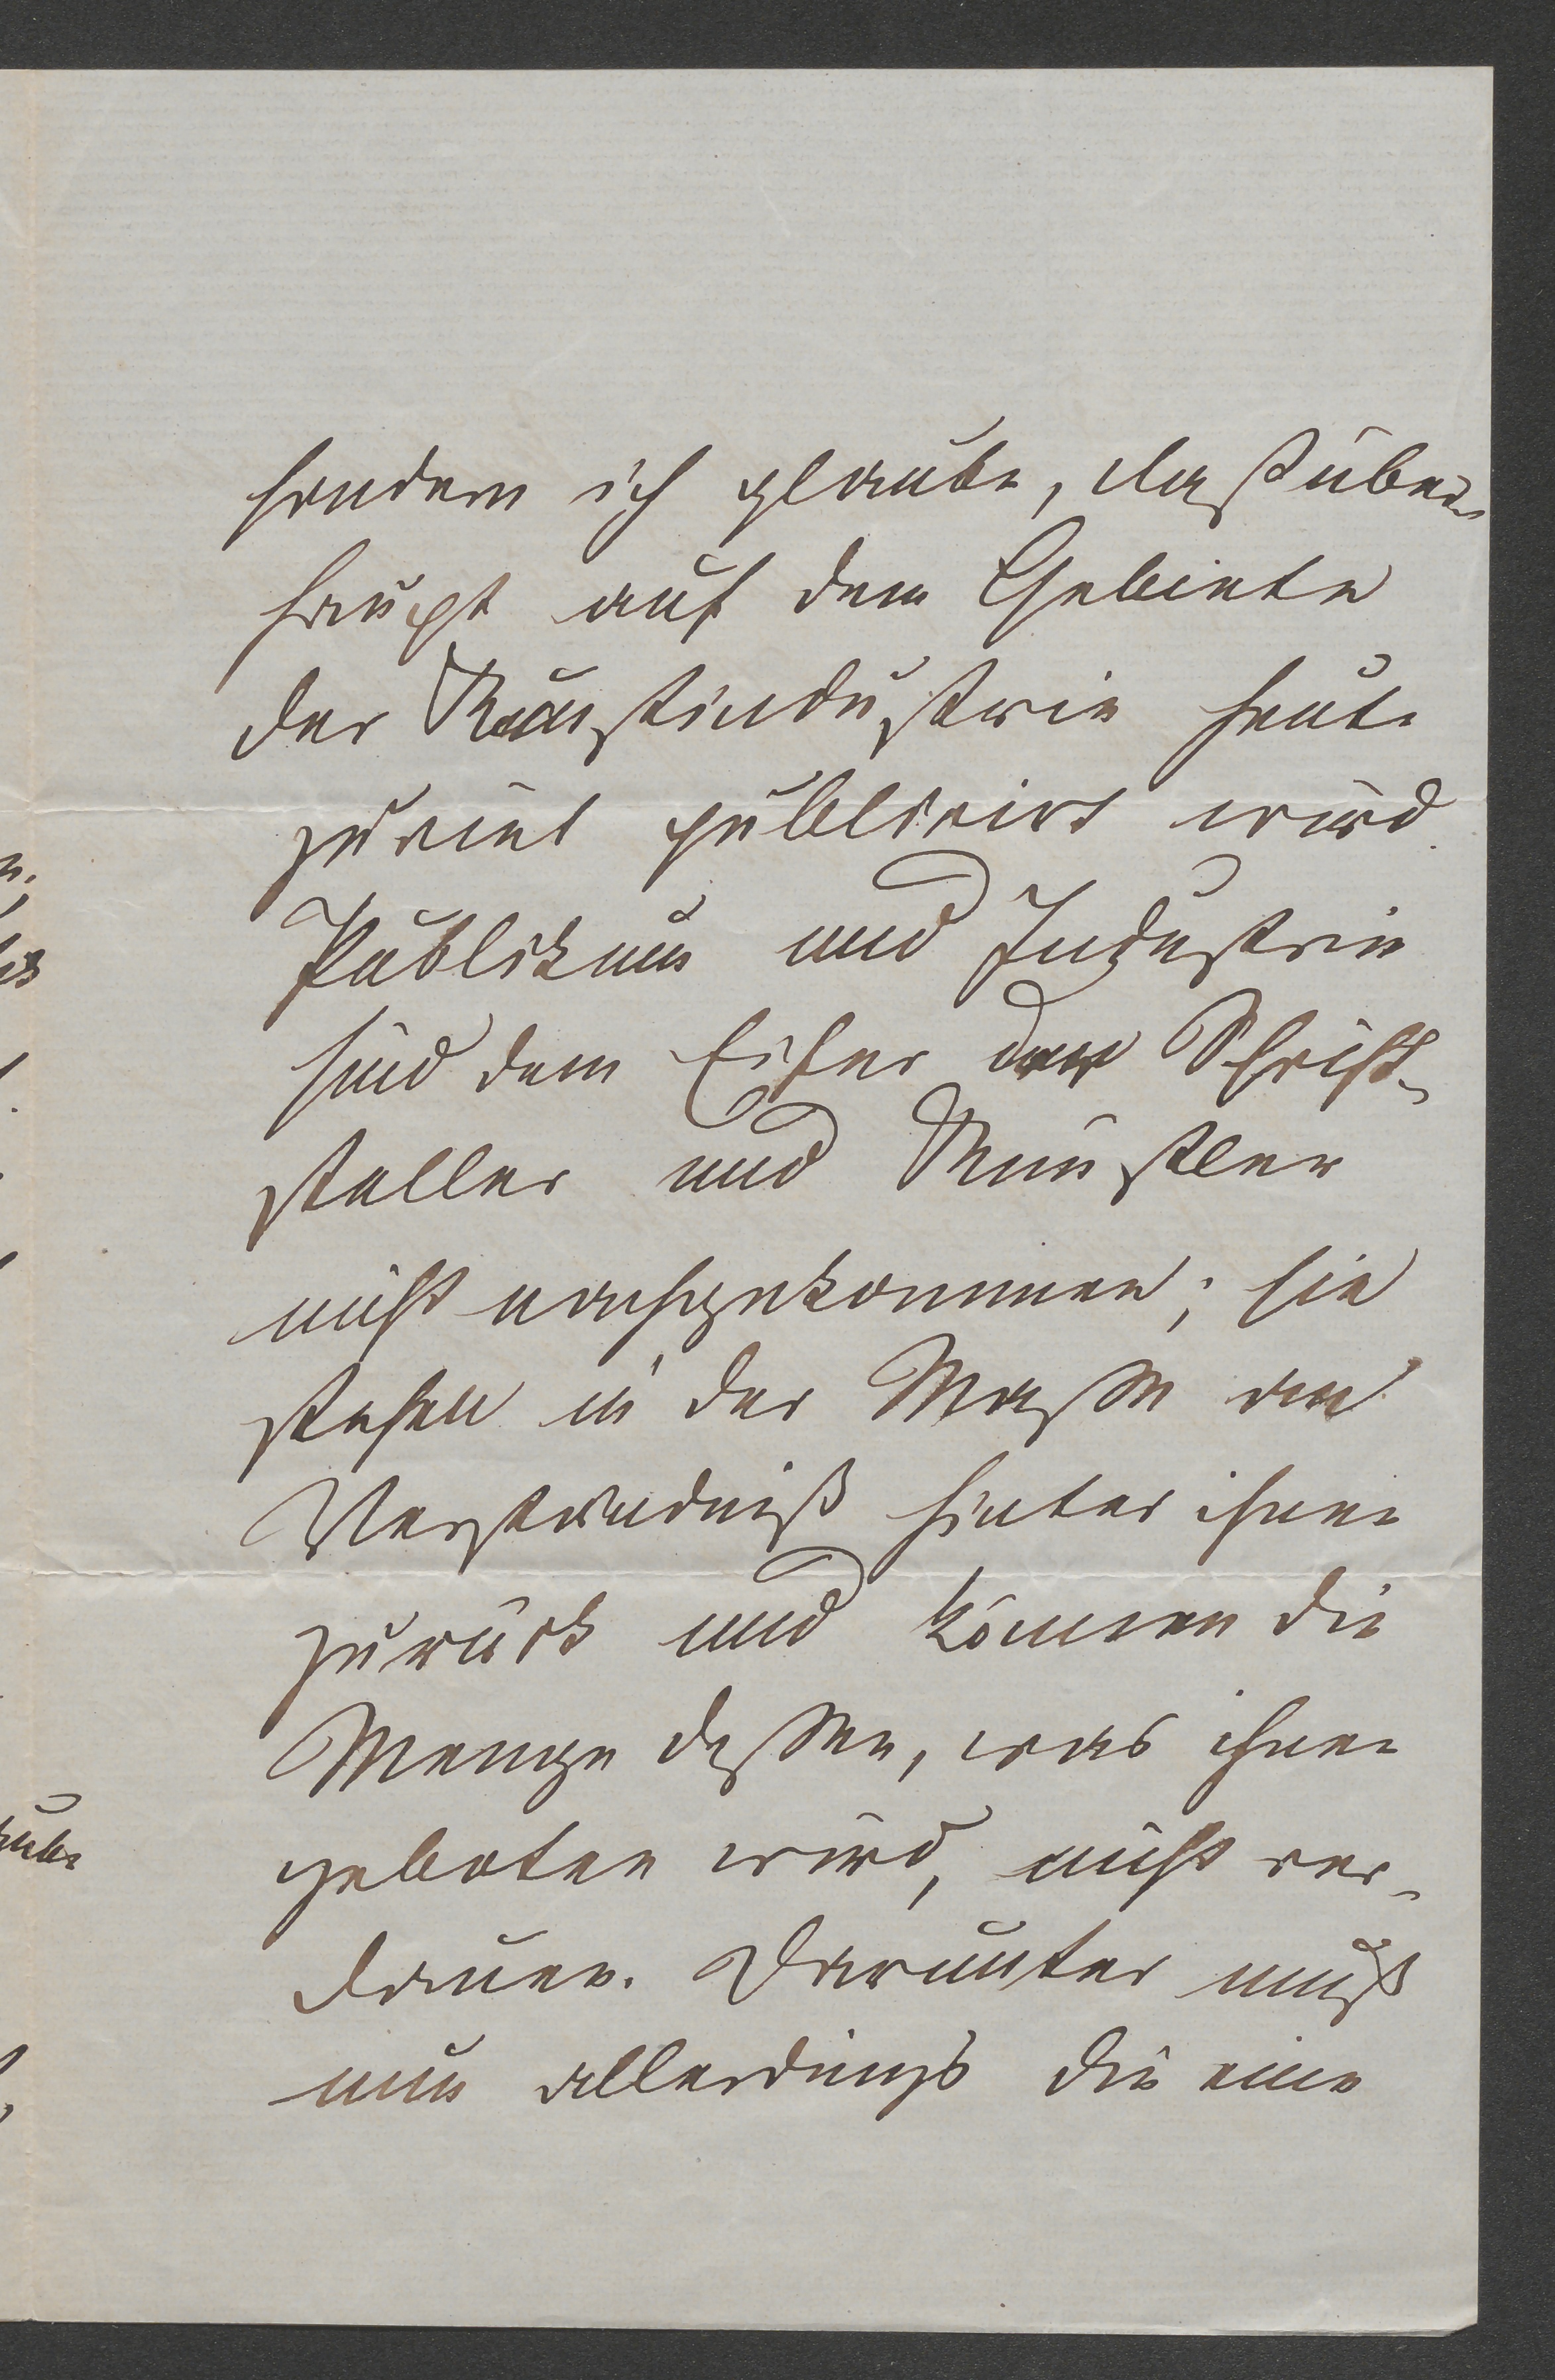 sondern ich glaube, daß über-
haupt auf dem Gebiete
der Kunstindustrie heute
zuviel publicirt wird.
Publikum und Industrie
sind dem Eifer der Schrift-
steller und Künstler
nicht nachgekommen; sie
stehen in der Masse an
Verständniß hinter ihnen
zurück und können die
Menge dessen, was ihnen
geboten wird, nicht ver-
dauen. Darunter muß
nun allerdings die eine